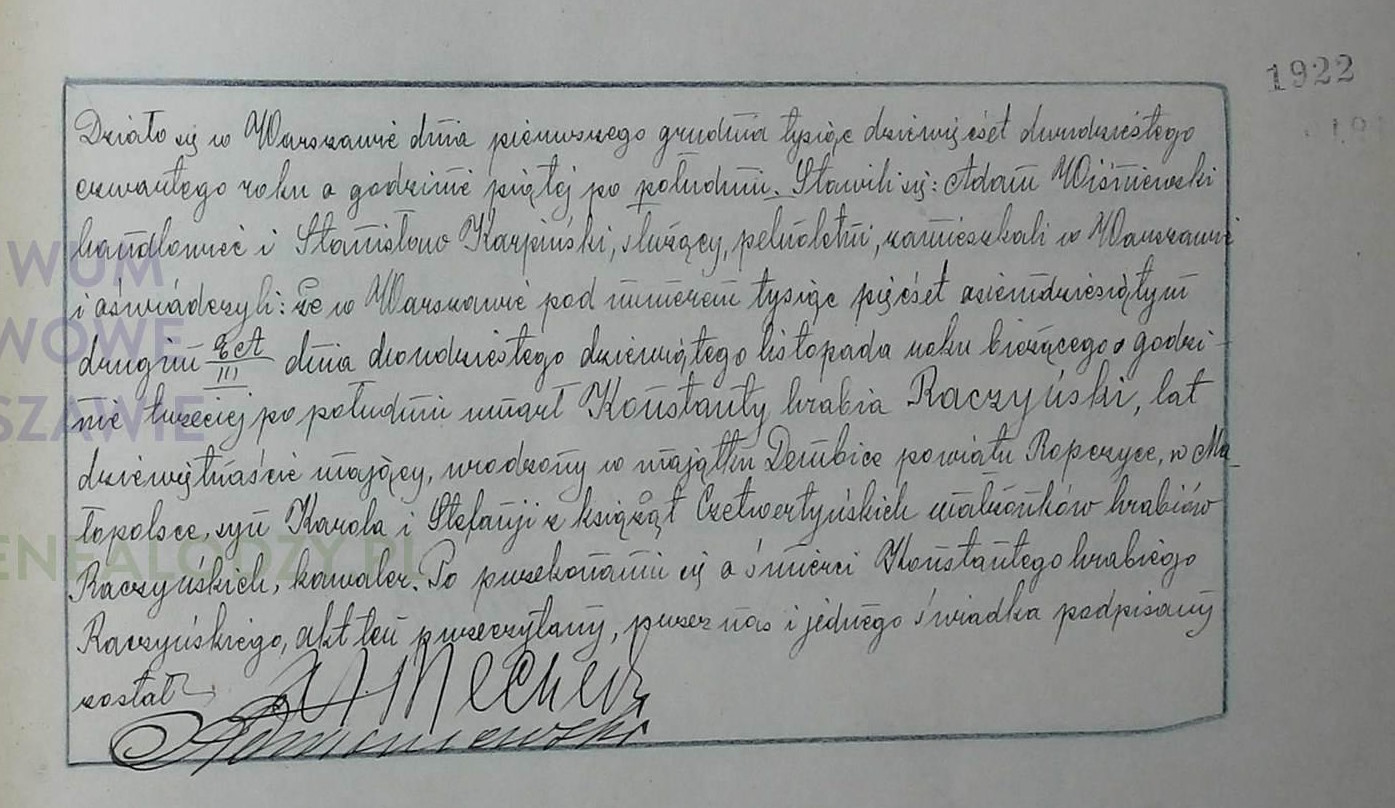 1922
Działo się w Warszawie dnia pierwszego grudnia tysiąc dziewięćset dwudziestego
czwartego roku o godzinie piątej po południu. Stawili się: Adam Wiśniewski
handlowiec i Stanisław Karpiński, służący, pełnoletni, zamieszkali w Warszawie
i oświadczyli: że w Warszawie pod numerem tysiąc pięćset osiemdziesiątym
drugim dnia dwudziestego dziewiątego listopada roku bieżącego o godzi-
nie trzeciej po południu umarł Konstanty hrabia Raczyński, lat
dziewiętnaście mający, urodzony w majątku Dembice powiatu Ropczyce, w Ma-
łopolsce, syn Karola i Stefanji z książąt Czetwertyńskich małżonków hrabiów
Raczyńskich, kawaler. Po przekonaniu się o śmierci Konstantego hrabiego
Raczyńskiego, akt ten przeczytany, przez nas i jednego świadka podpisany
został
WUM
WOWE
SZAWIE
ENEALODZY.PL